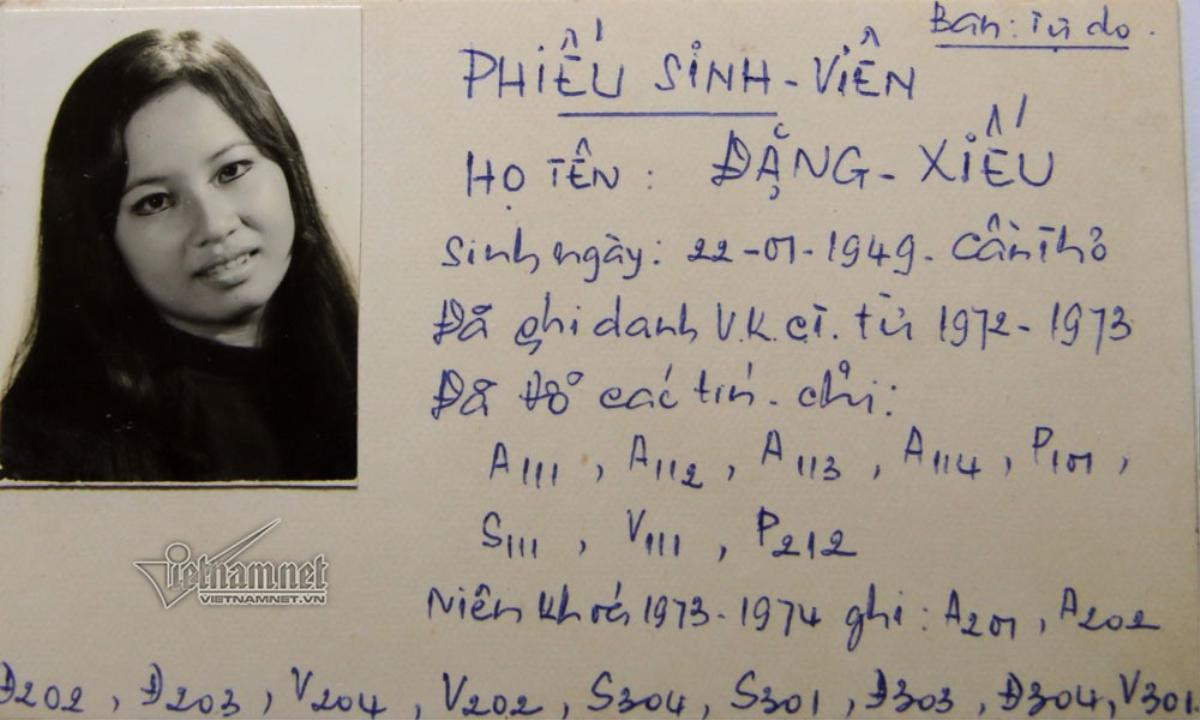 Ban: Tự do.
PHIẾU SINH-VIÊN
HỌ TÊN: ĐẶNG-XIẾU
Sinh ngày: 22-01-1949. Cần Thơ
Đã ghi danh V.K.CT. từ 1972-1973
Đã đỗ các tín-chỉ:
A111, A112, A113, A114, P101,
S111, V111, P212
Niên khoá 1973-1974 ghi: A201, A202
Đ202, Đ203, V204, V202, S304, S301, Đ303, Đ304, V301
Vietnamnet
VIETNAMNET.VN